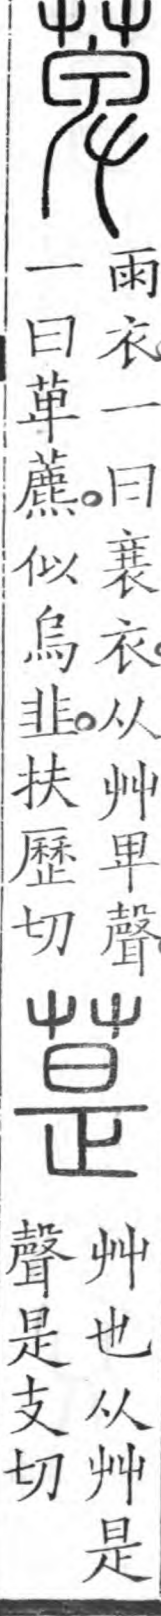 萆
雨衣一曰衰衣。从艸卑聲
一曰萆藨。似烏韭。扶歷切
䓺
艸也从艸是
聲是支切